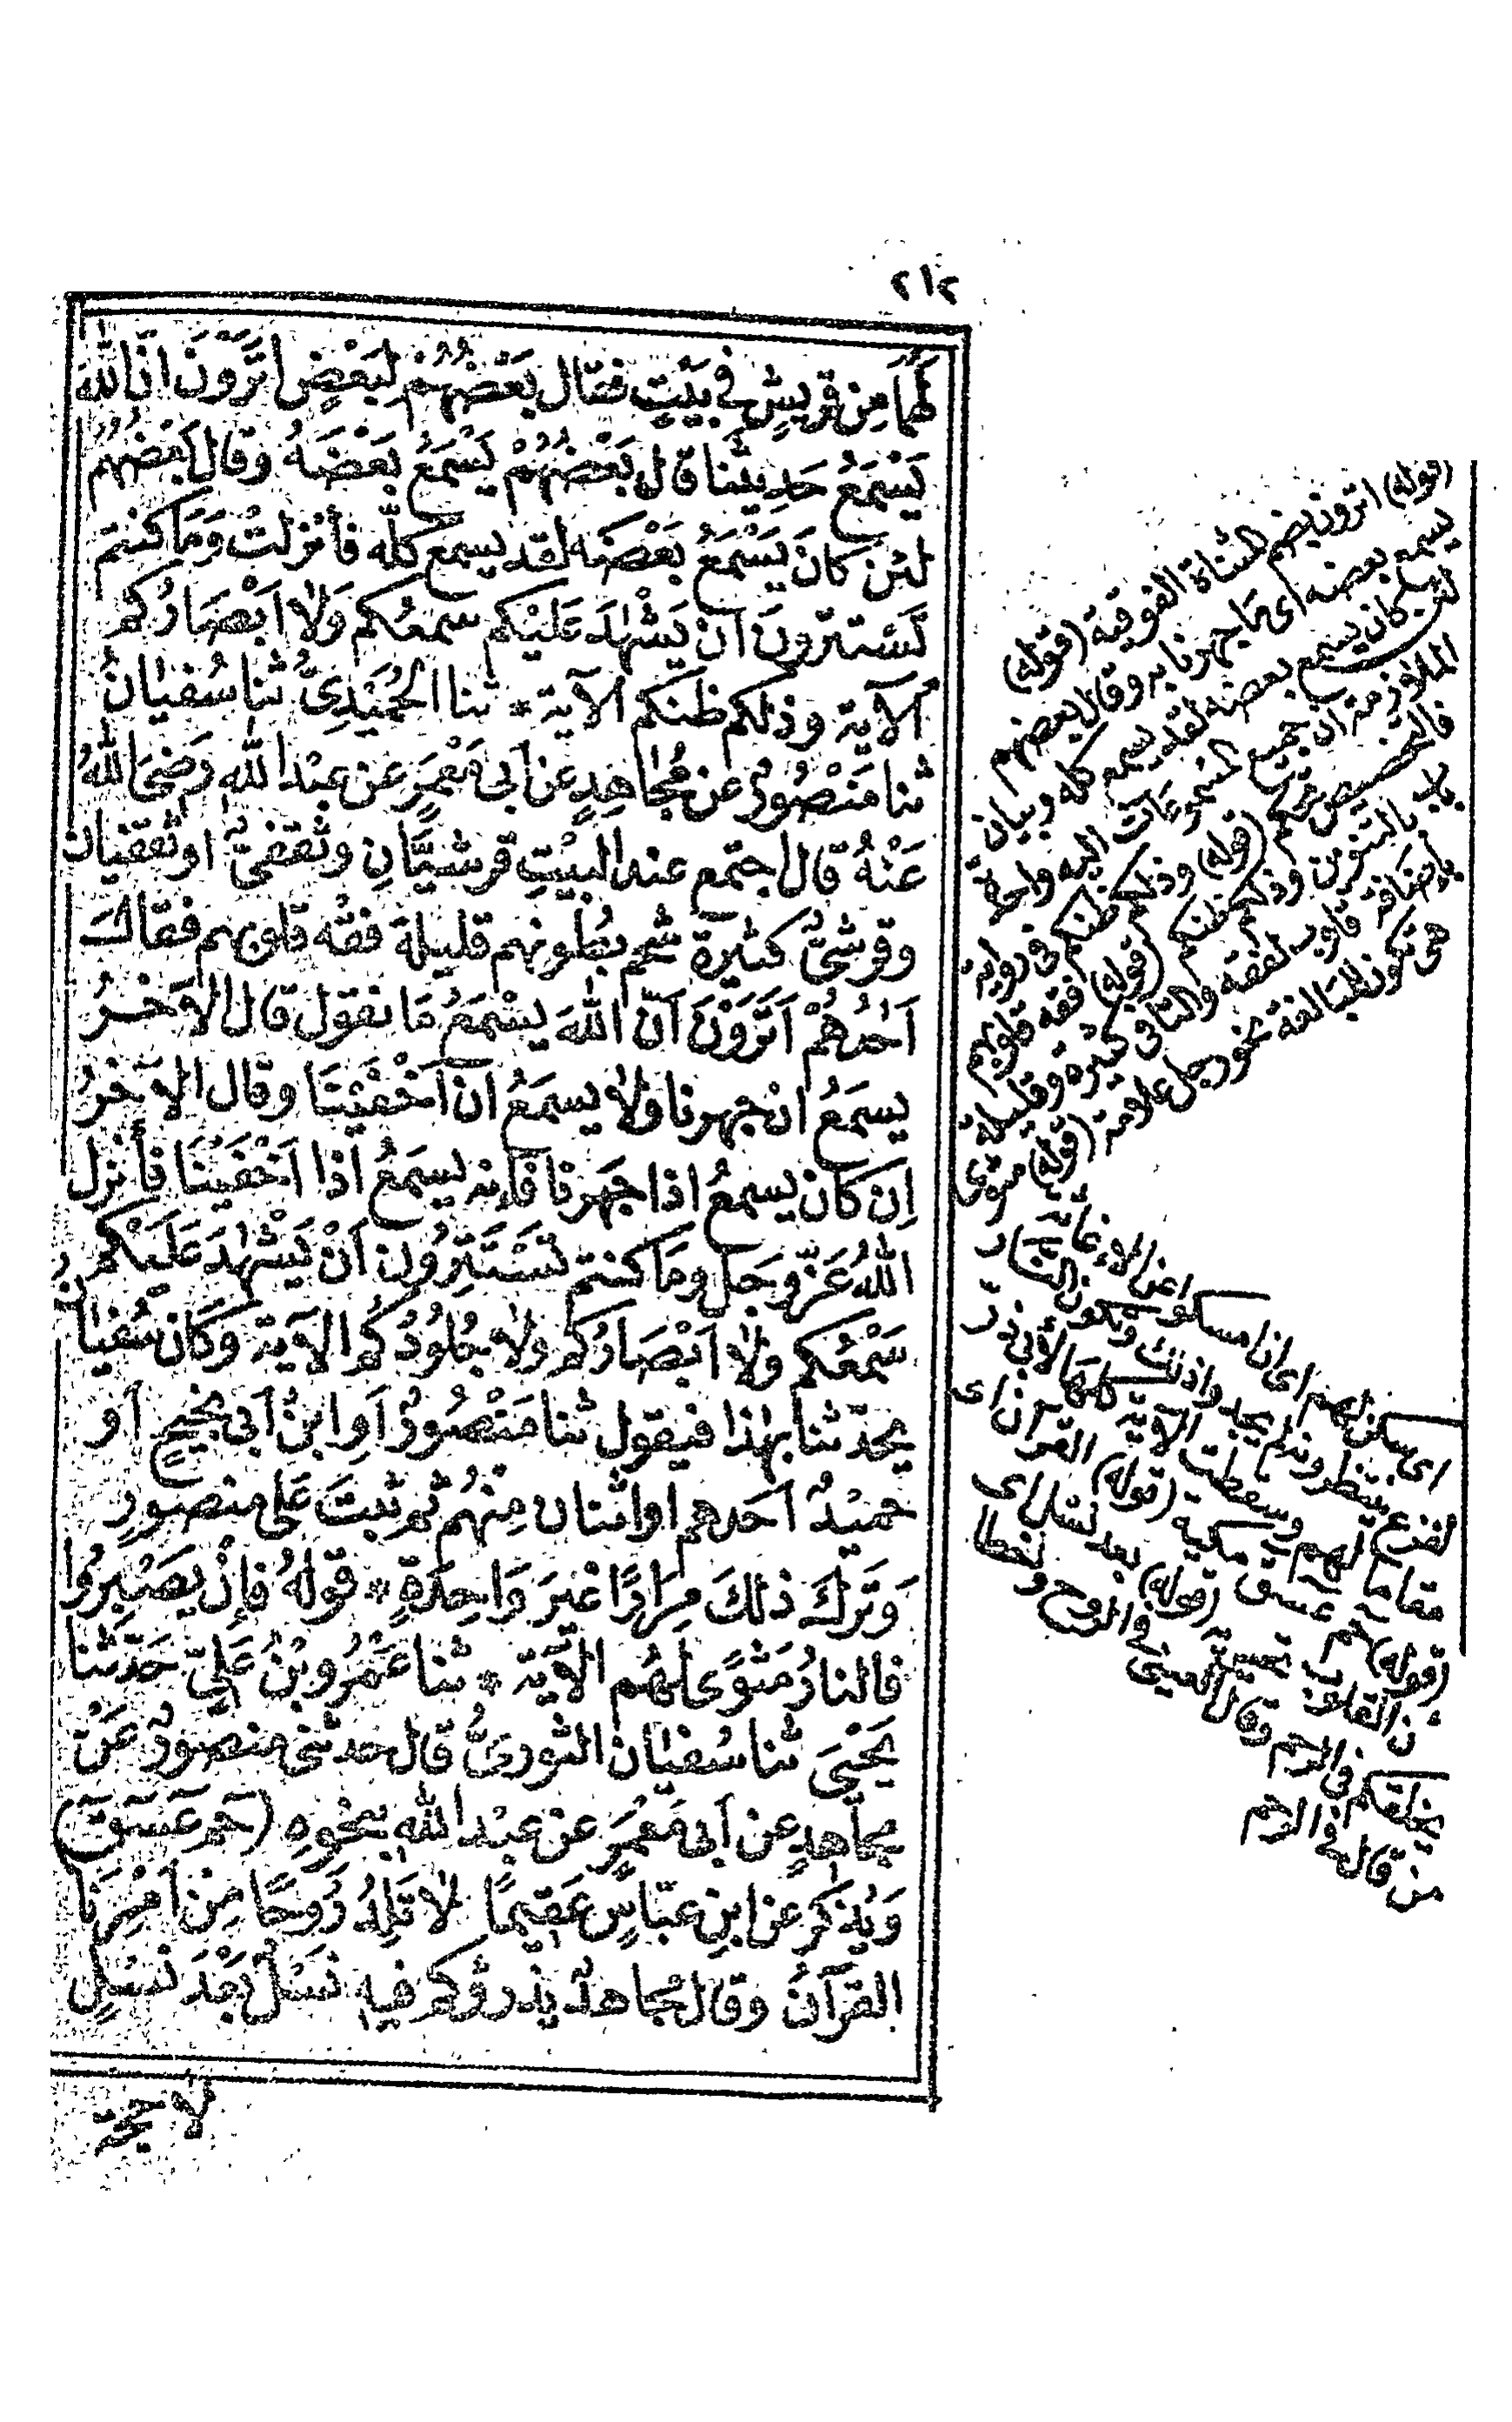 ٢١٢
لهما من قريش في بيت فقال بعضهم لبعض اترون ان الله
يسمع حديثنا قال بعضهم يسمع بعضه وقال بعضهم
لئن كان يسمع بعضه لقد يسمع كله فأنزلت وما كنتم
تستترون أن يشهد عليكم سمعكم ولا ابصاركم
الآية وذلكم ظنكم الآية * ثنا الحميدي ثنا سفيان
ثنا منصور عن مجاهد عن ابي معمر عن عبد الله رضي الله
عنه قال اجتمع عند البيت قرشيان وثقفي او ثقفيان
وقرشي كثيرة شحم بطونهم قليلة فقه قلوبهم فقال
احدهم اترون ان الله يسمع ما نقول قال الآخر
يسمع ان جهرنا ولا يسمع ان اخفينا وقال الآخر
إن كان يسمع اذا جهرنا فإنه يسمع اذا اخفينا فأنزل
الله عز وجل وما كنتم تستترون أن يشهد عليكم
سمعكم ولا ابصاركم ولا جلودكم الآية وكان سفيان
يحدثنا بهذا فيقول ثنا منصور او ابن ابي نجيح او
حميد احدهم او اثنان منهم ثم ثبت على منصور
وترك ذلك مرارا غير واحدة * قوله فإن يصبروا
فالنار مثوى لهم الآية * ثنا عمرو بن علي حدثنا
يحيى ثنا سفيان الثوري قال حدثني منصور عن
مجاهد عن ابي معمر عن عبد الله بنحوه (حم عسق)
ويذكر عن ابن عباس عقيما لا تلد روحا من امرنا
القرآن وقال مجاهد يذرؤكم فيه نسل بعد نسل
لا حجة
(قوله) اترون بضم المثناة الفوقية (قوله)
يسمع بعضه اى ما جهرنا به وقال بعضهم
لئن كان يسمع بعضه لقد يسمع كله وبيان
الملازمة ان جميع المسموعات اليه واحدة
فالتخصيص تحكم (قوله) وذلكم ظنكم في رواية
وذلكم ظنكم (قوله) فقه قلوبهم
باضافة قلوب لفقه والتا في كثيرة وقليلة
تكون للمبالغة نحو رجل علامة (قوله) مثوى
اى سكن لهم اى ان امسكوا عن الاستغاثة
لفرج ينتظرونه لم يجدوا ذلك وتكون النار
مقاما لهم وسقطت الآية كلها لأبي ذر
(قوله) حم عسق مكية (قوله) القرآن اى
(قوله) بعد نسل اى
يخلقكم في الرحم وقال القتيبي في الزوج وخطا
من قال في الرحم